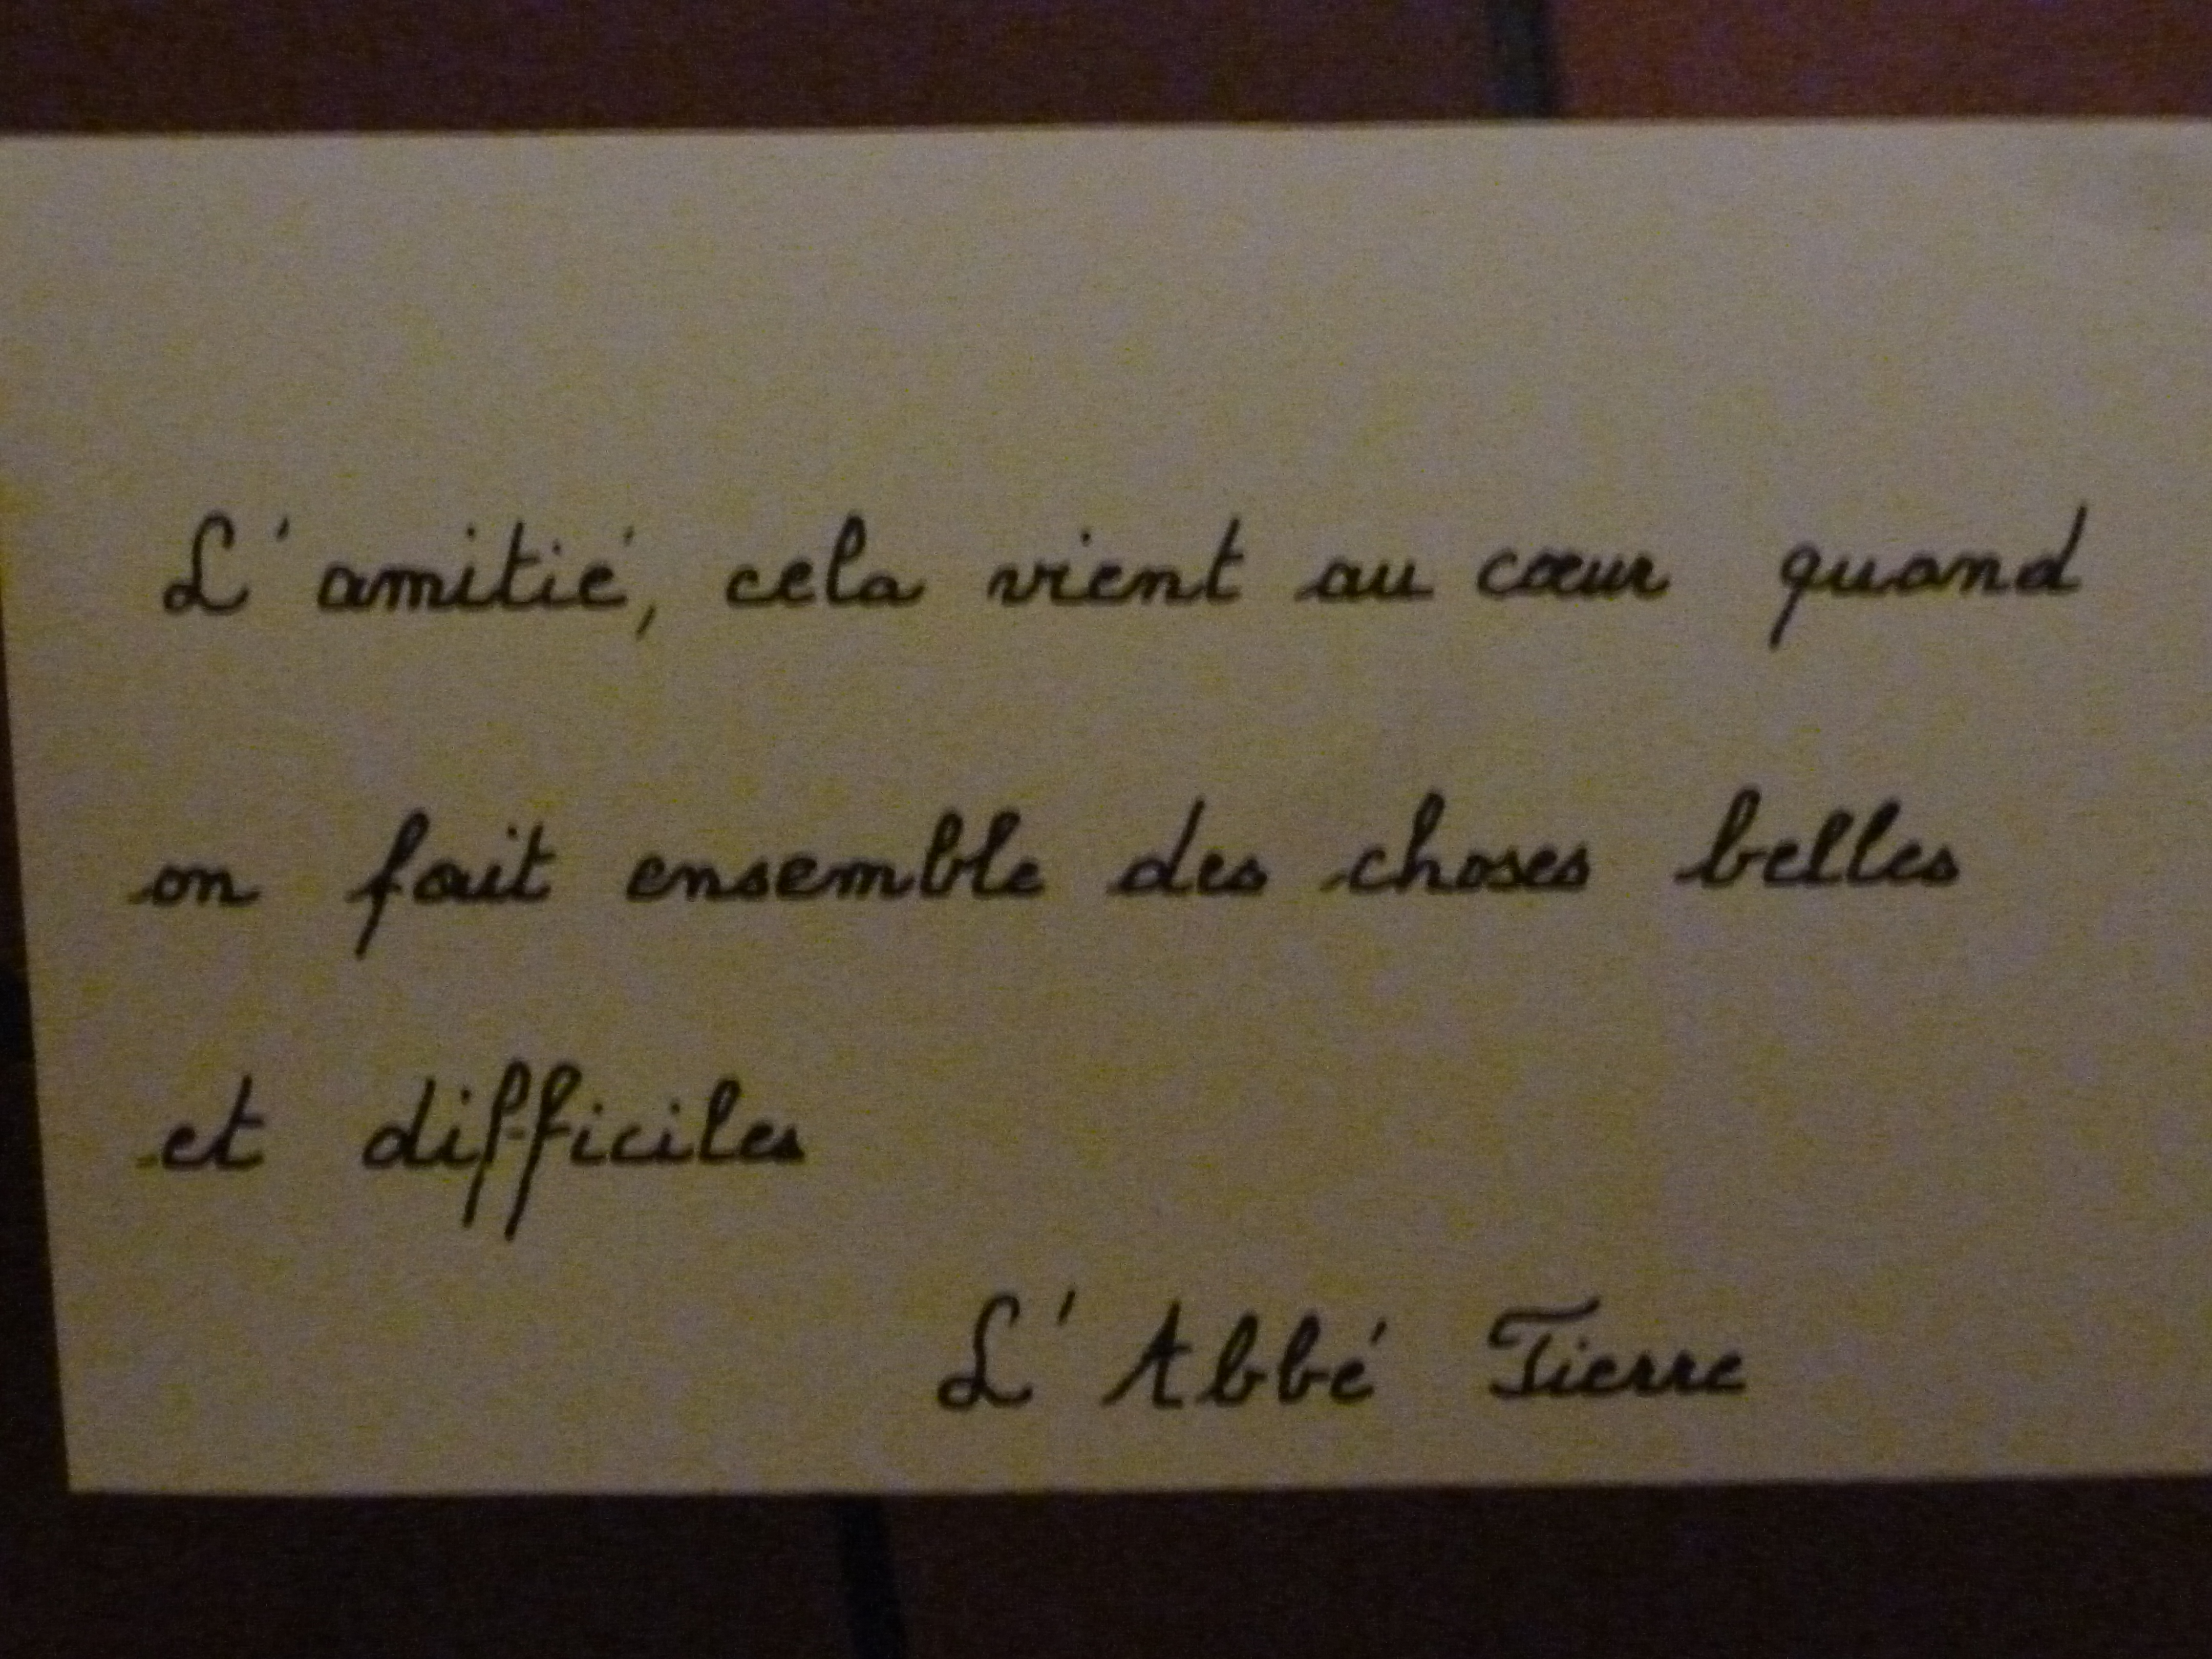 L'amitié, cela vient au cœur quand
on fait ensemble des choses belles
et difficiles
L'Abbé Pierre